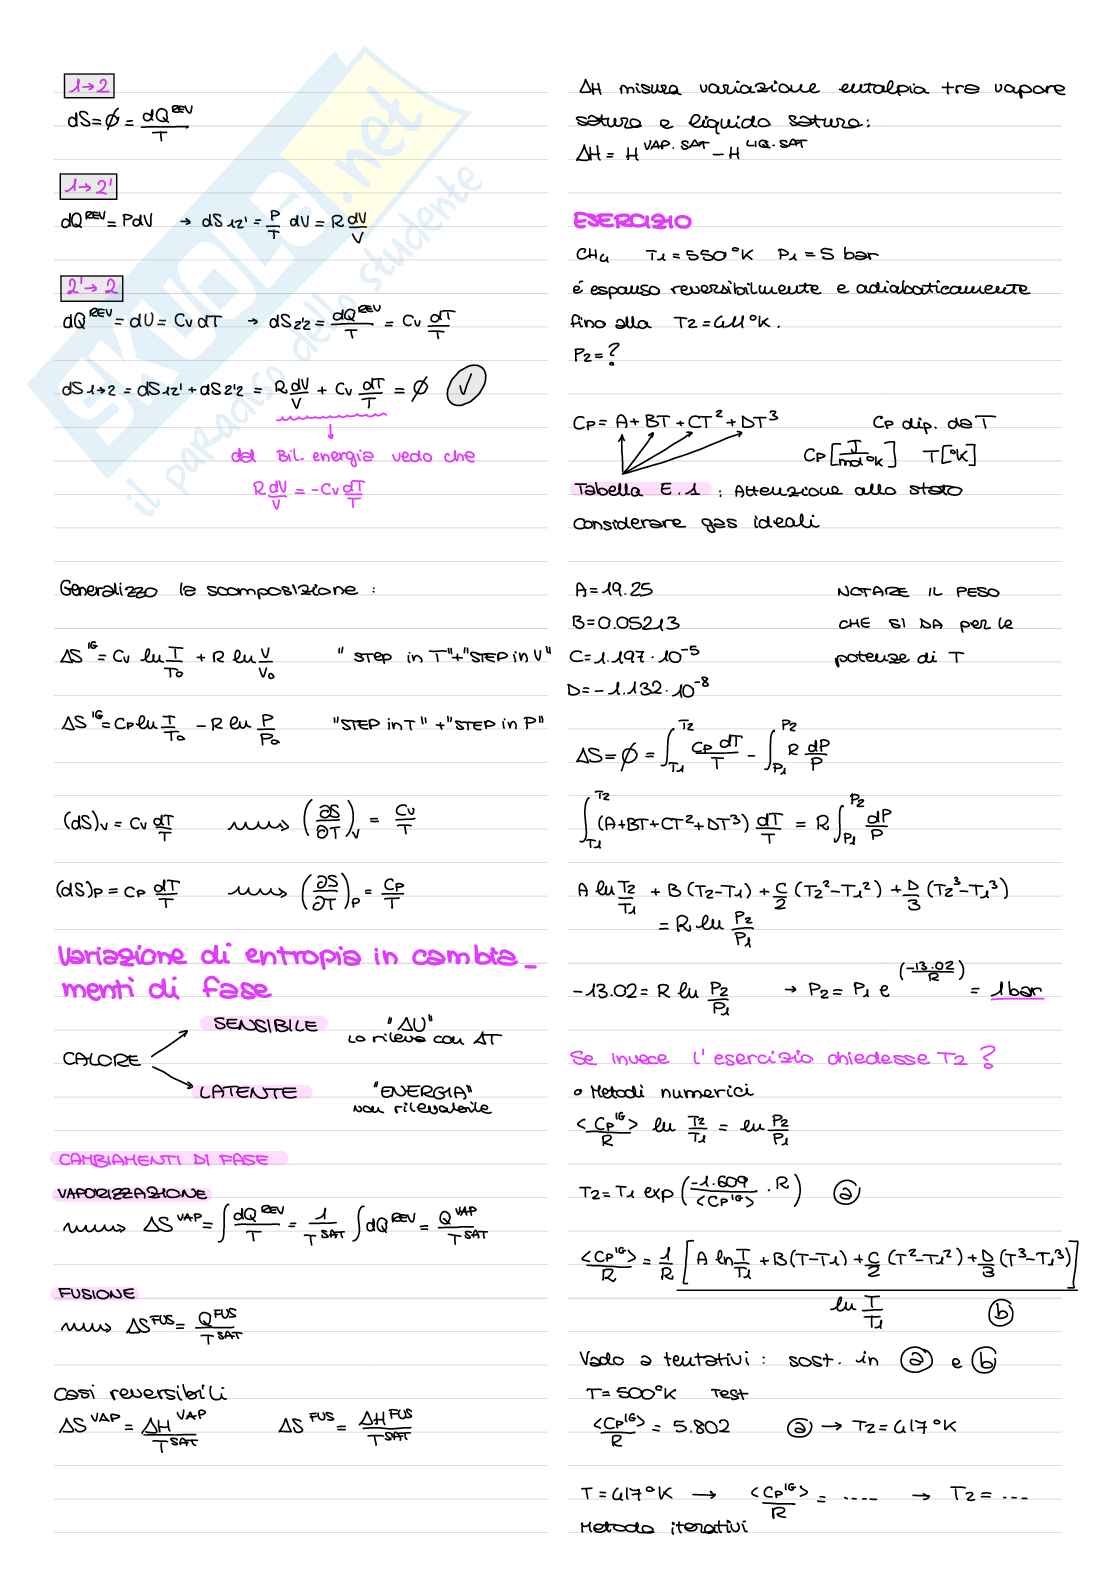 1→2
dS=∅= dQ^REV/T
1→2'
dQ^REV= PdV → dS12'= P/T dV = R dV/V
2'→2
dQ^REV= dU= Cv dT → dS2'2= dQ^REV/T = Cv dT/T
dS1→2 = dS12' + dS2'2 = R dV/V + Cv dT/T = ∅ ✓
dal Bil. energia vedo che
R dV/V = -Cv dT/T
Generalizzo la scomposizione :
ΔS^IG= Cv ln T/T0 + R ln V/V0 "STEP in T"+"STEP in V"
ΔS^IG= CP ln T/T0 - R ln P/P0 "STEP in T" +"STEP in P"
(dS)V = Cv dT/T ⟿ (∂S/∂T)V = Cv/T
(dS)P = CP dT/T ⟿ (∂S/∂T)P = CP/T
Variazione di entropia in cambia_
menti di fase
SENSIBILE "ΔU"
Lo rilevo con ΔT
CALORE
LATENTE "ENERGIA"
non rilevabile
CAMBIAMENTI DI FASE
VAPORIZZAZIONE
⟿ ΔS^VAP= ∫ dQ^REV/T = 1/T^SAT ∫ dQ^REV = Q^VAP/T^SAT
FUSIONE
⟿ ΔS^FUS= Q^FUS/T^SAT
Casi reversibili
ΔS^VAP = ΔH^VAP/T^SAT ΔS^FUS = ΔH^FUS/T^SAT
ΔH misura variazione entalpia tra vapore
saturo e liquido saturo:
ΔH= H^VAP.SAT - H^LIQ.SAT
ESERCIZIO
CH4 T1=550°K P1=5 bar
é espanso reversibilmente e adiabaticamente
fino alla T2=411°K.
P2=?
CP= A+BT+CT²+DT³ CP dip. da T
CP [J/mol°K] T[°K]
Tabella E.1 : Attenzione allo stato
Considerare gas ideali
A=19.25 NOTARE IL PESO
B=0.05213 CHE SI DA per le
C=1.197·10^-5 potenze di T
D=-1.132·10^-8
ΔS=∅ = ∫T1^T2 CP dT/T - ∫P1^P2 R dP/P
∫T1^T2 (A+BT+CT²+DT³) dT/T = R ∫P1^P2 dP/P
A ln T2/T1 + B (T2-T1) + C/2 (T2²-T1²) + D/3 (T2³-T1³)
= R ln P2/P1
-13.02= R ln P2/P1 → P2= P1 e^(-13.02/R) = 1bar
Se invece l'esercizio chiedesse T2 ?
• Metodi numerici
<CP^IG>/R ln T2/T1 = ln P2/P1
T2=T1 exp(-1.609/<CP^IG> . R) ⓐ
<CP^IG>/R = 1/R [A ln T/T1 + B(T-T1) + C/2 (T²-T1²) + D/3 (T³-T1³)]
ln T/T1 ⓑ
Vado a tentativi : sost. in ⓐ e ⓑ
T=500°K Test
<CP^IG>/R = 5.802 ⓐ → T2=417°K
T=417°K → <CP^IG>/R = ..... → T2= ...
Metodo iterativi
SKUOLA.net
il paradiso dello studente